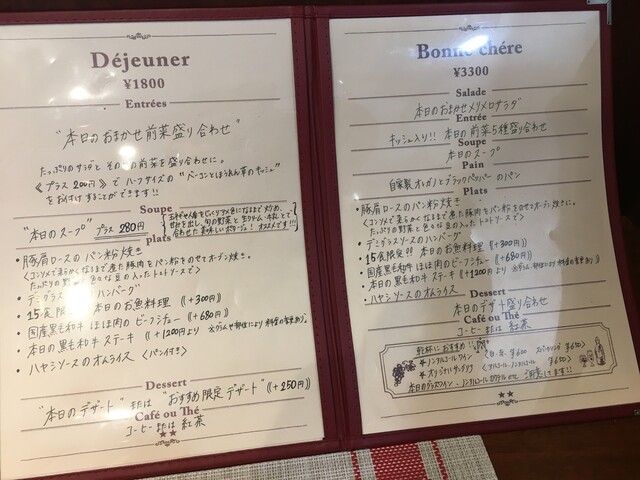 Déjeuner
¥1800
Entrées
"本日のおまかせ前菜盛り合わせ"
たっぷりのサラダと その他の前菜を盛り合わせに。
《プラス 200円》で ハーフサイズの "ベーコンとほうれん草のキッシュ"
をお付けすることができます!!
Soupe
"本日のスープ" プラス 280円
plats
・豚肩ロースのパン粉焼き
<コンソメで柔らかくなるまで煮た豚肉をパン粉をのせてオーブン焼きに。
たっぷりの野菜と色々な豆の入ったトマトソースで>
・デミグラスソースのハンバーグ
・15食限定 本日のお魚料理 (+300円)
・国産黒毛和牛 ほほ肉のビーフシチュー (+680円)
・本日の黒毛和牛 ステーキ (+1200円より
・ハヤシソースのオムライス <パン付き>
Dessert
"本日のデザート" または "おすすめ限定デザート" (+250円)
Café ou Thé
コーヒー または 紅茶
Bonne chére
¥3300
Salade
本日のおまかせメリメロサラダ
Entrée
キッシュ入り!! 本日の前菜5種盛り合わせ
Soupe
本日のスープ
Pain
自家製 オレガノとブラックペッパーのパン
Plats
・豚肩ロースのパン粉焼き
<コンソメで柔らかくなるまで煮た豚肉をパン粉をのせてオーブン焼きに。
たっぷりの野菜と色々な豆の入ったトマトソースで>
・デミグラスソースのハンバーグ
・15食限定!! 本日のお魚料理 (+300円)
・国産黒毛和牛 ほほ肉のビーフシチュー (+680円)
・本日の黒毛和牛 ステーキ (+1200円より
・ハヤシソースのオムライス
Dessert
本日のデザート盛り合わせ
Café ou Thé
コーヒー または 紅茶
乾杯におすすめ!!
ノンアルコールワイン
¥600 スパークリング ¥650
オリジナルサングリア
¥650
本日のグラスワイン・ノンアルコールカクテル ご用意してます!!